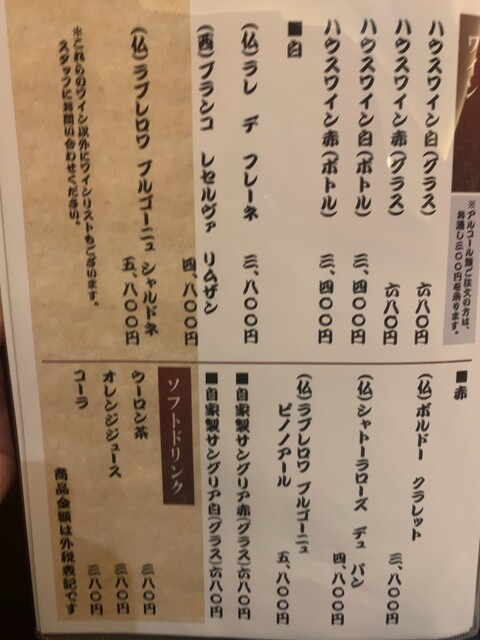 ワイン
※アルコール類ご注文の方は、
お通し三〇〇円を承ります。
ハウスワイン白(グラス) 六八〇円
ハウスワイン赤(グラス) 六八〇円
ハウスワイン白(ボトル) 三、四〇〇円
ハウスワイン赤(ボトル) 三、四〇〇円
■白
(仏)ラレ デ フレーネ 三、八〇〇円
(西)ブランコ レセルヴァ リムザン 四、八〇〇円
(仏)ラブレロワ ブルゴーニュ シャルドネ 五、八〇〇円
※これらのワイン以外にワインリストもございます。
スタッフにお問い合わせください。
■赤
(仏)ボルドー クラレット 三、八〇〇円
(仏)シャトーラローズ デュ パン 四、八〇〇円
(仏)ラブレロワ ブルゴーニュ
ピノノアール 五、八〇〇円
■自家製サングリア赤(グラス)六八〇円
■自家製サングリア白(グラス)六八〇円
ソフトドリンク
ウーロン茶 三八〇円
オレンジジュース 三八〇円
コーラ 三八〇円
商品金額は外税表記です